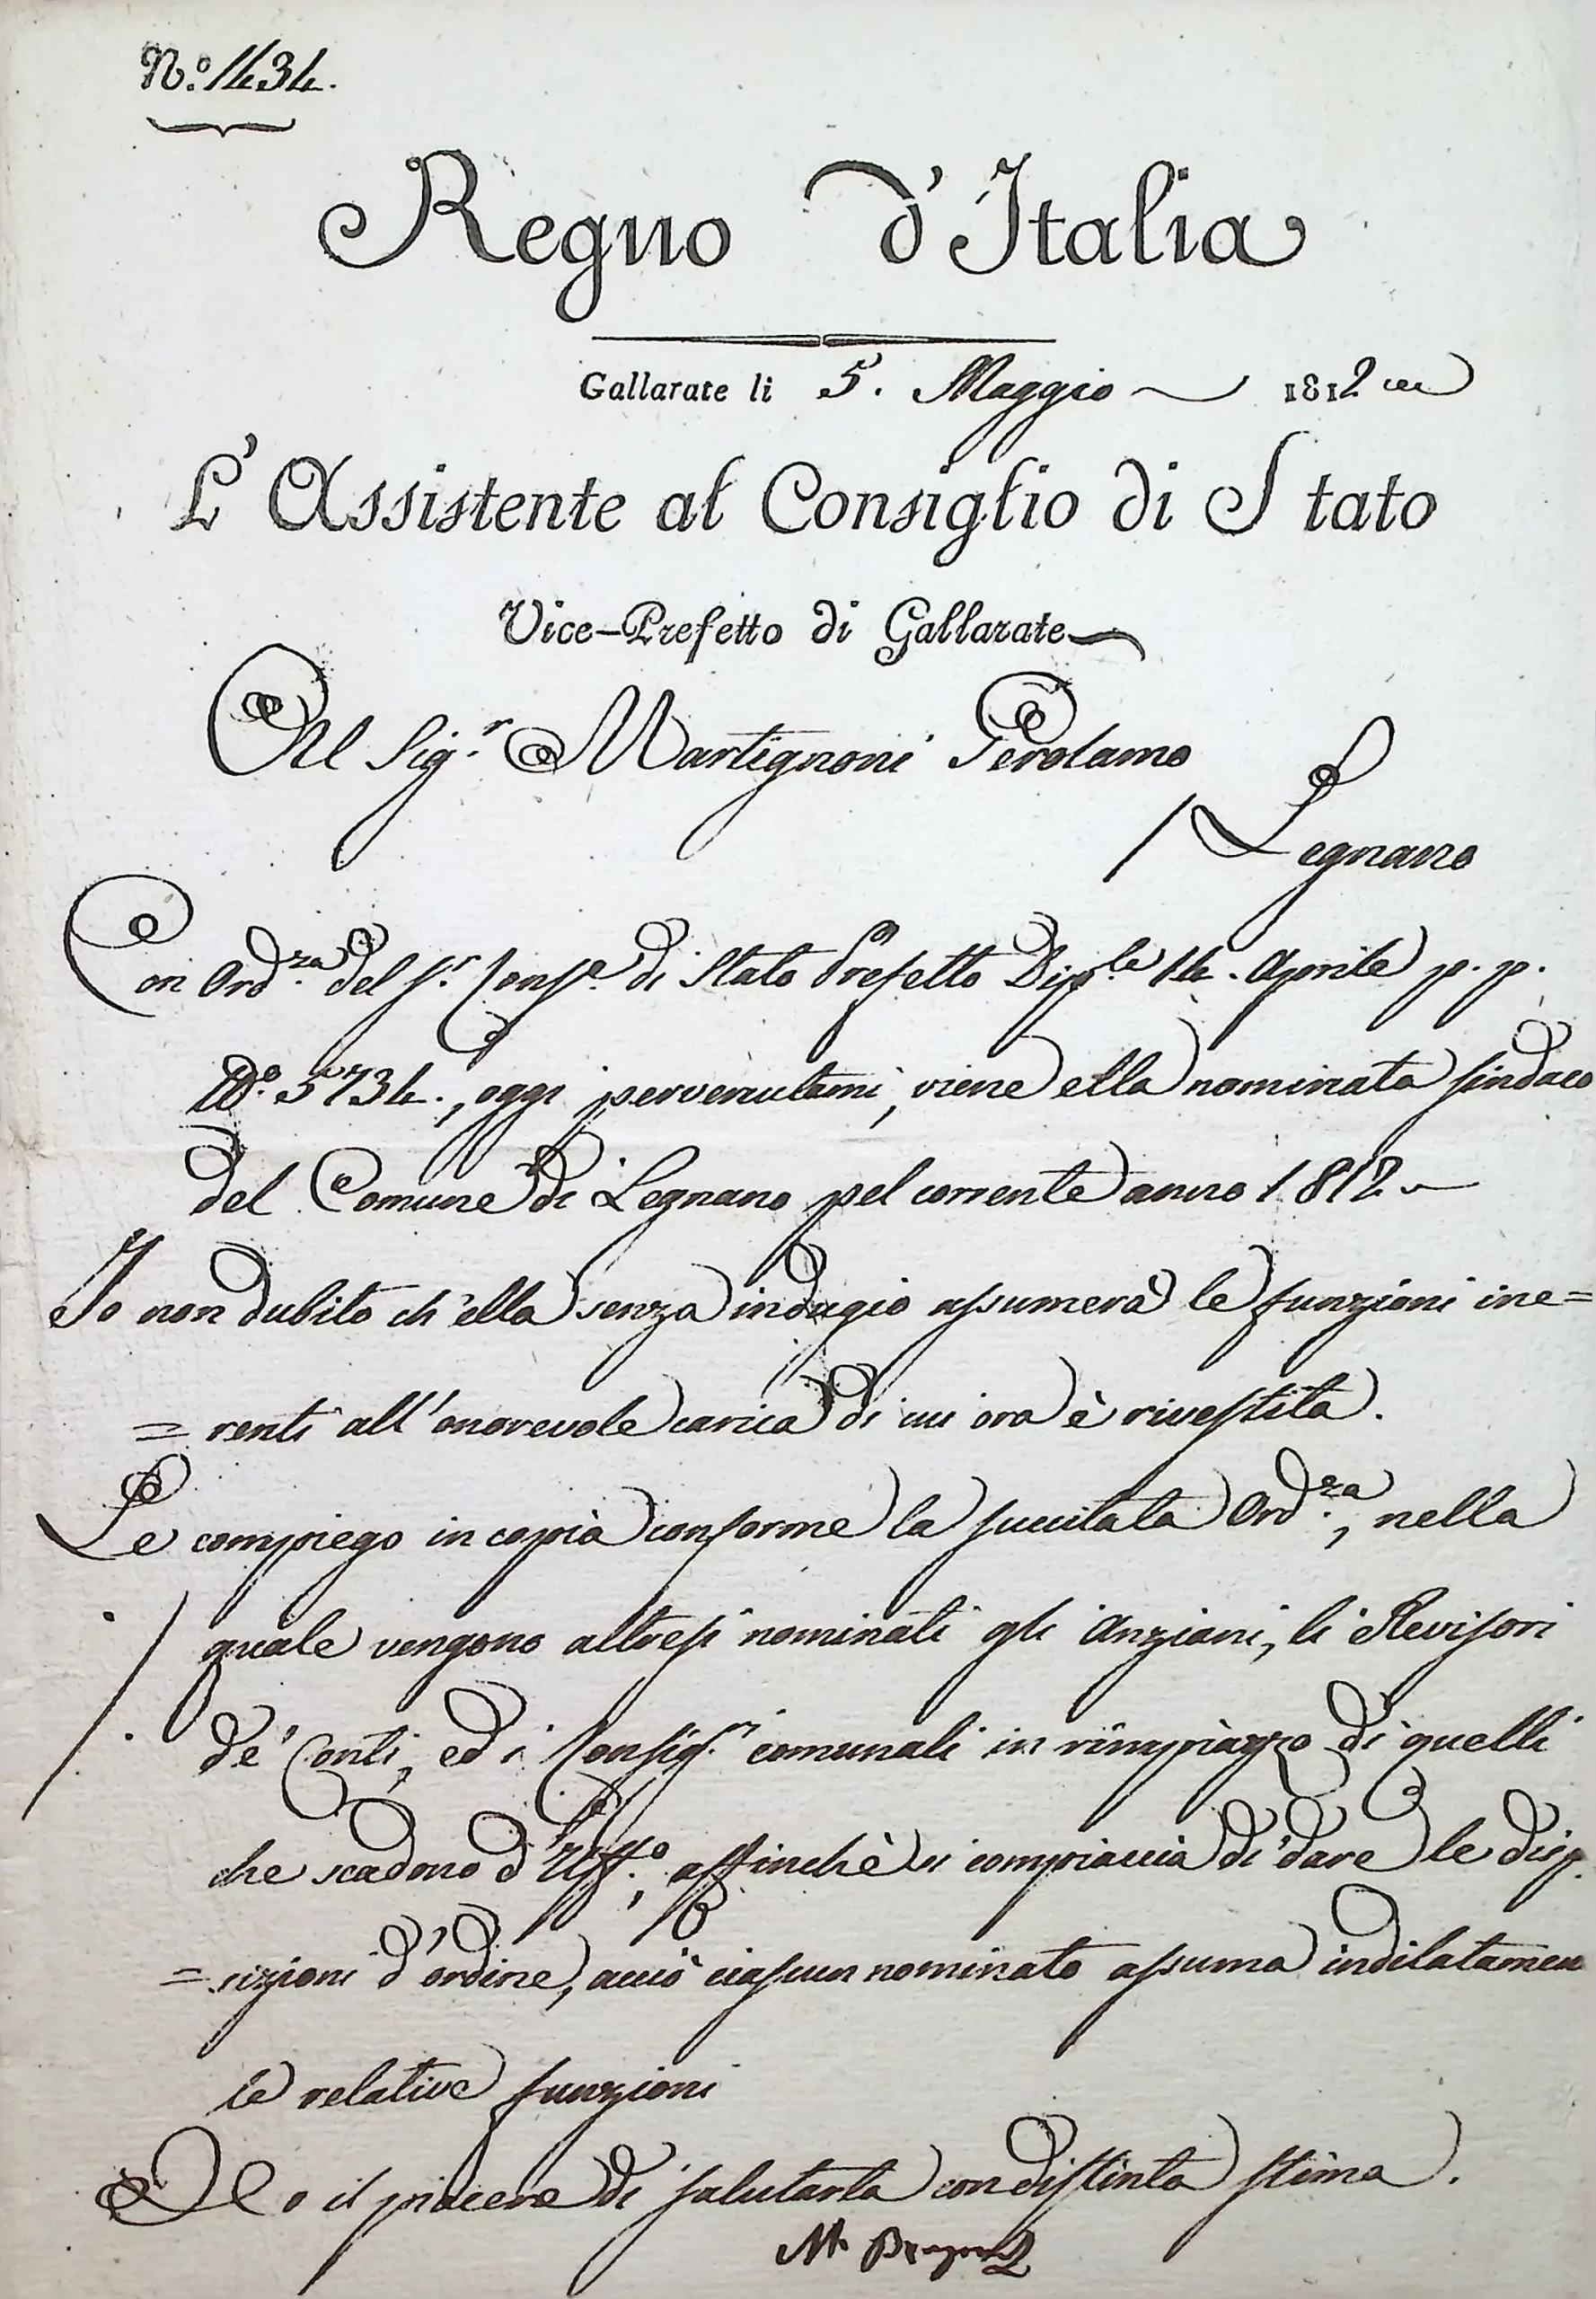 N.º 1434.
Regno d'Italia
Gallarate li 5. Maggio 1812
L'Assistente al Consiglio di Stato
Vice-Prefetto di Gallarate
Al Sig.r Martignoni Gerolamo
Legnano
Con Ord.za del S.r Cons.e di Stato Prefetto Dip.le 14. Aprile p. p.
N.º 5734., oggi pervenutami, viene ella nominata Sindaco
del Comune di Legnano pel corrente anno 1812
Io non dubito ch'ella senza indugio assumerà le funzioni ine=
=renti all'onorevole carica di cui ora è rivestita.
Le compiego in copia conforme la succitata Ord.za, nella
quale vengono altresì nominati gli Anziani, li Revisori
de' Conti, ed i Consig.ri comunali in rimpiazzo di quelli
che scadono d'Uff.o, affinchè si compiaccia di dare le disp.
=sizioni d'ordine, acciò ciascun nominato assuma indilatamen
le relative funzioni
Ho il piacere di salutarla con distinta stima.